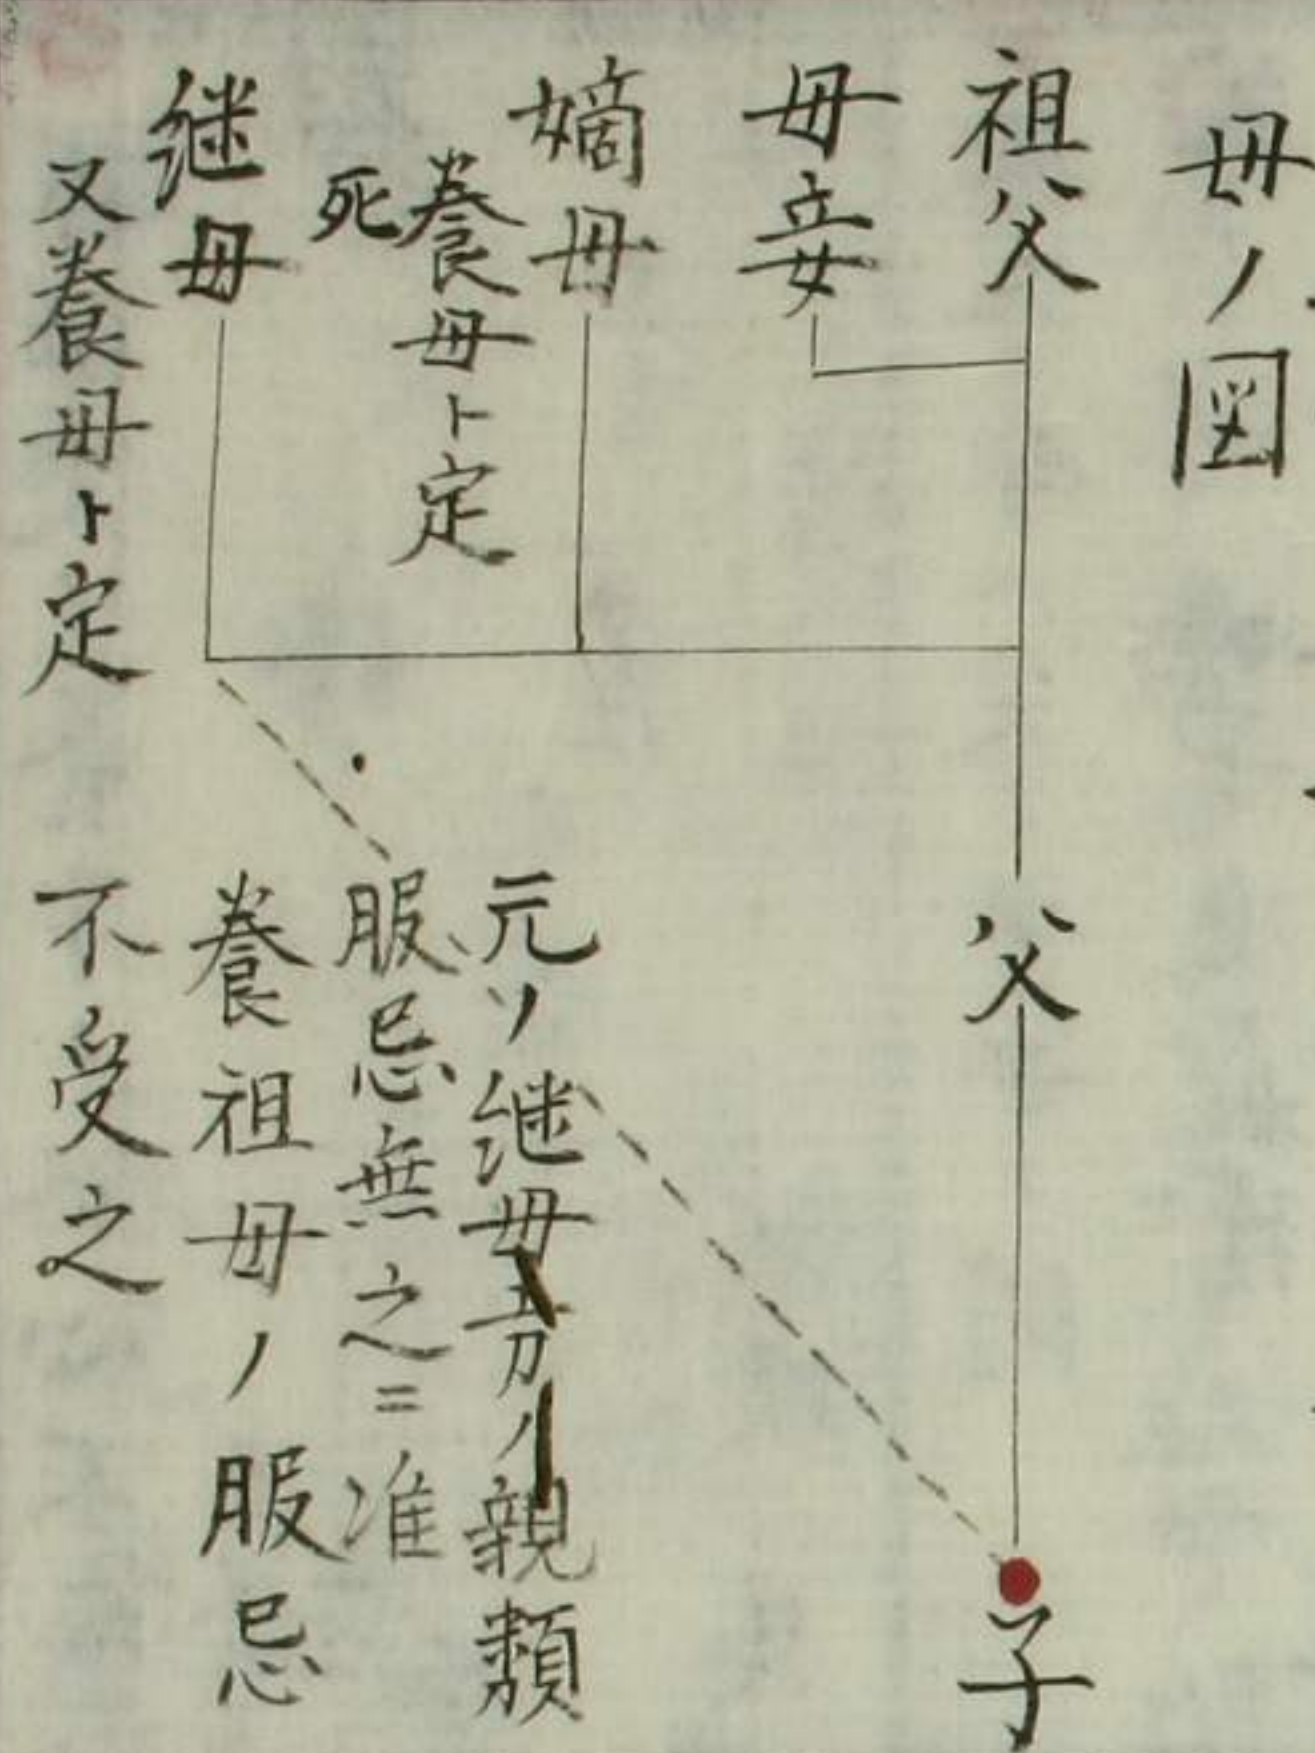 母ノ図
祖父
母妾
嫡母
養母ト定
死
継母
又養母ト定
父
子
元ソ継母方ノ親類
服忌無之ニ准
養祖母ノ服忌
不受之